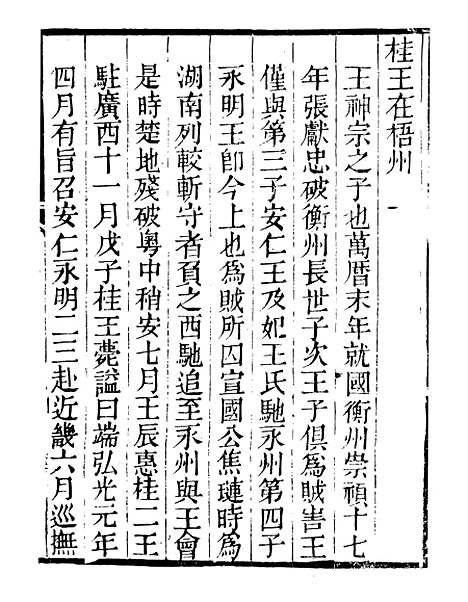 桂王在梧州
王神宗之子也萬曆末年就國衡州崇禎十七
年張獻忠破衡州長世子次王子俱爲賊害王
僅與第三子安仁王及妃王氏馳永州第四子
永明王卽今上也爲賊所囚宣國公焦璉時爲
湖南列較斬守者負之西馳追至永州與王會
是時楚地殘破粵中稍安七月壬辰惠桂二王
駐廣西十一月戊子桂王薨謚曰端弘光元年
四月有旨召安仁永明二三赴近畿六月巡撫